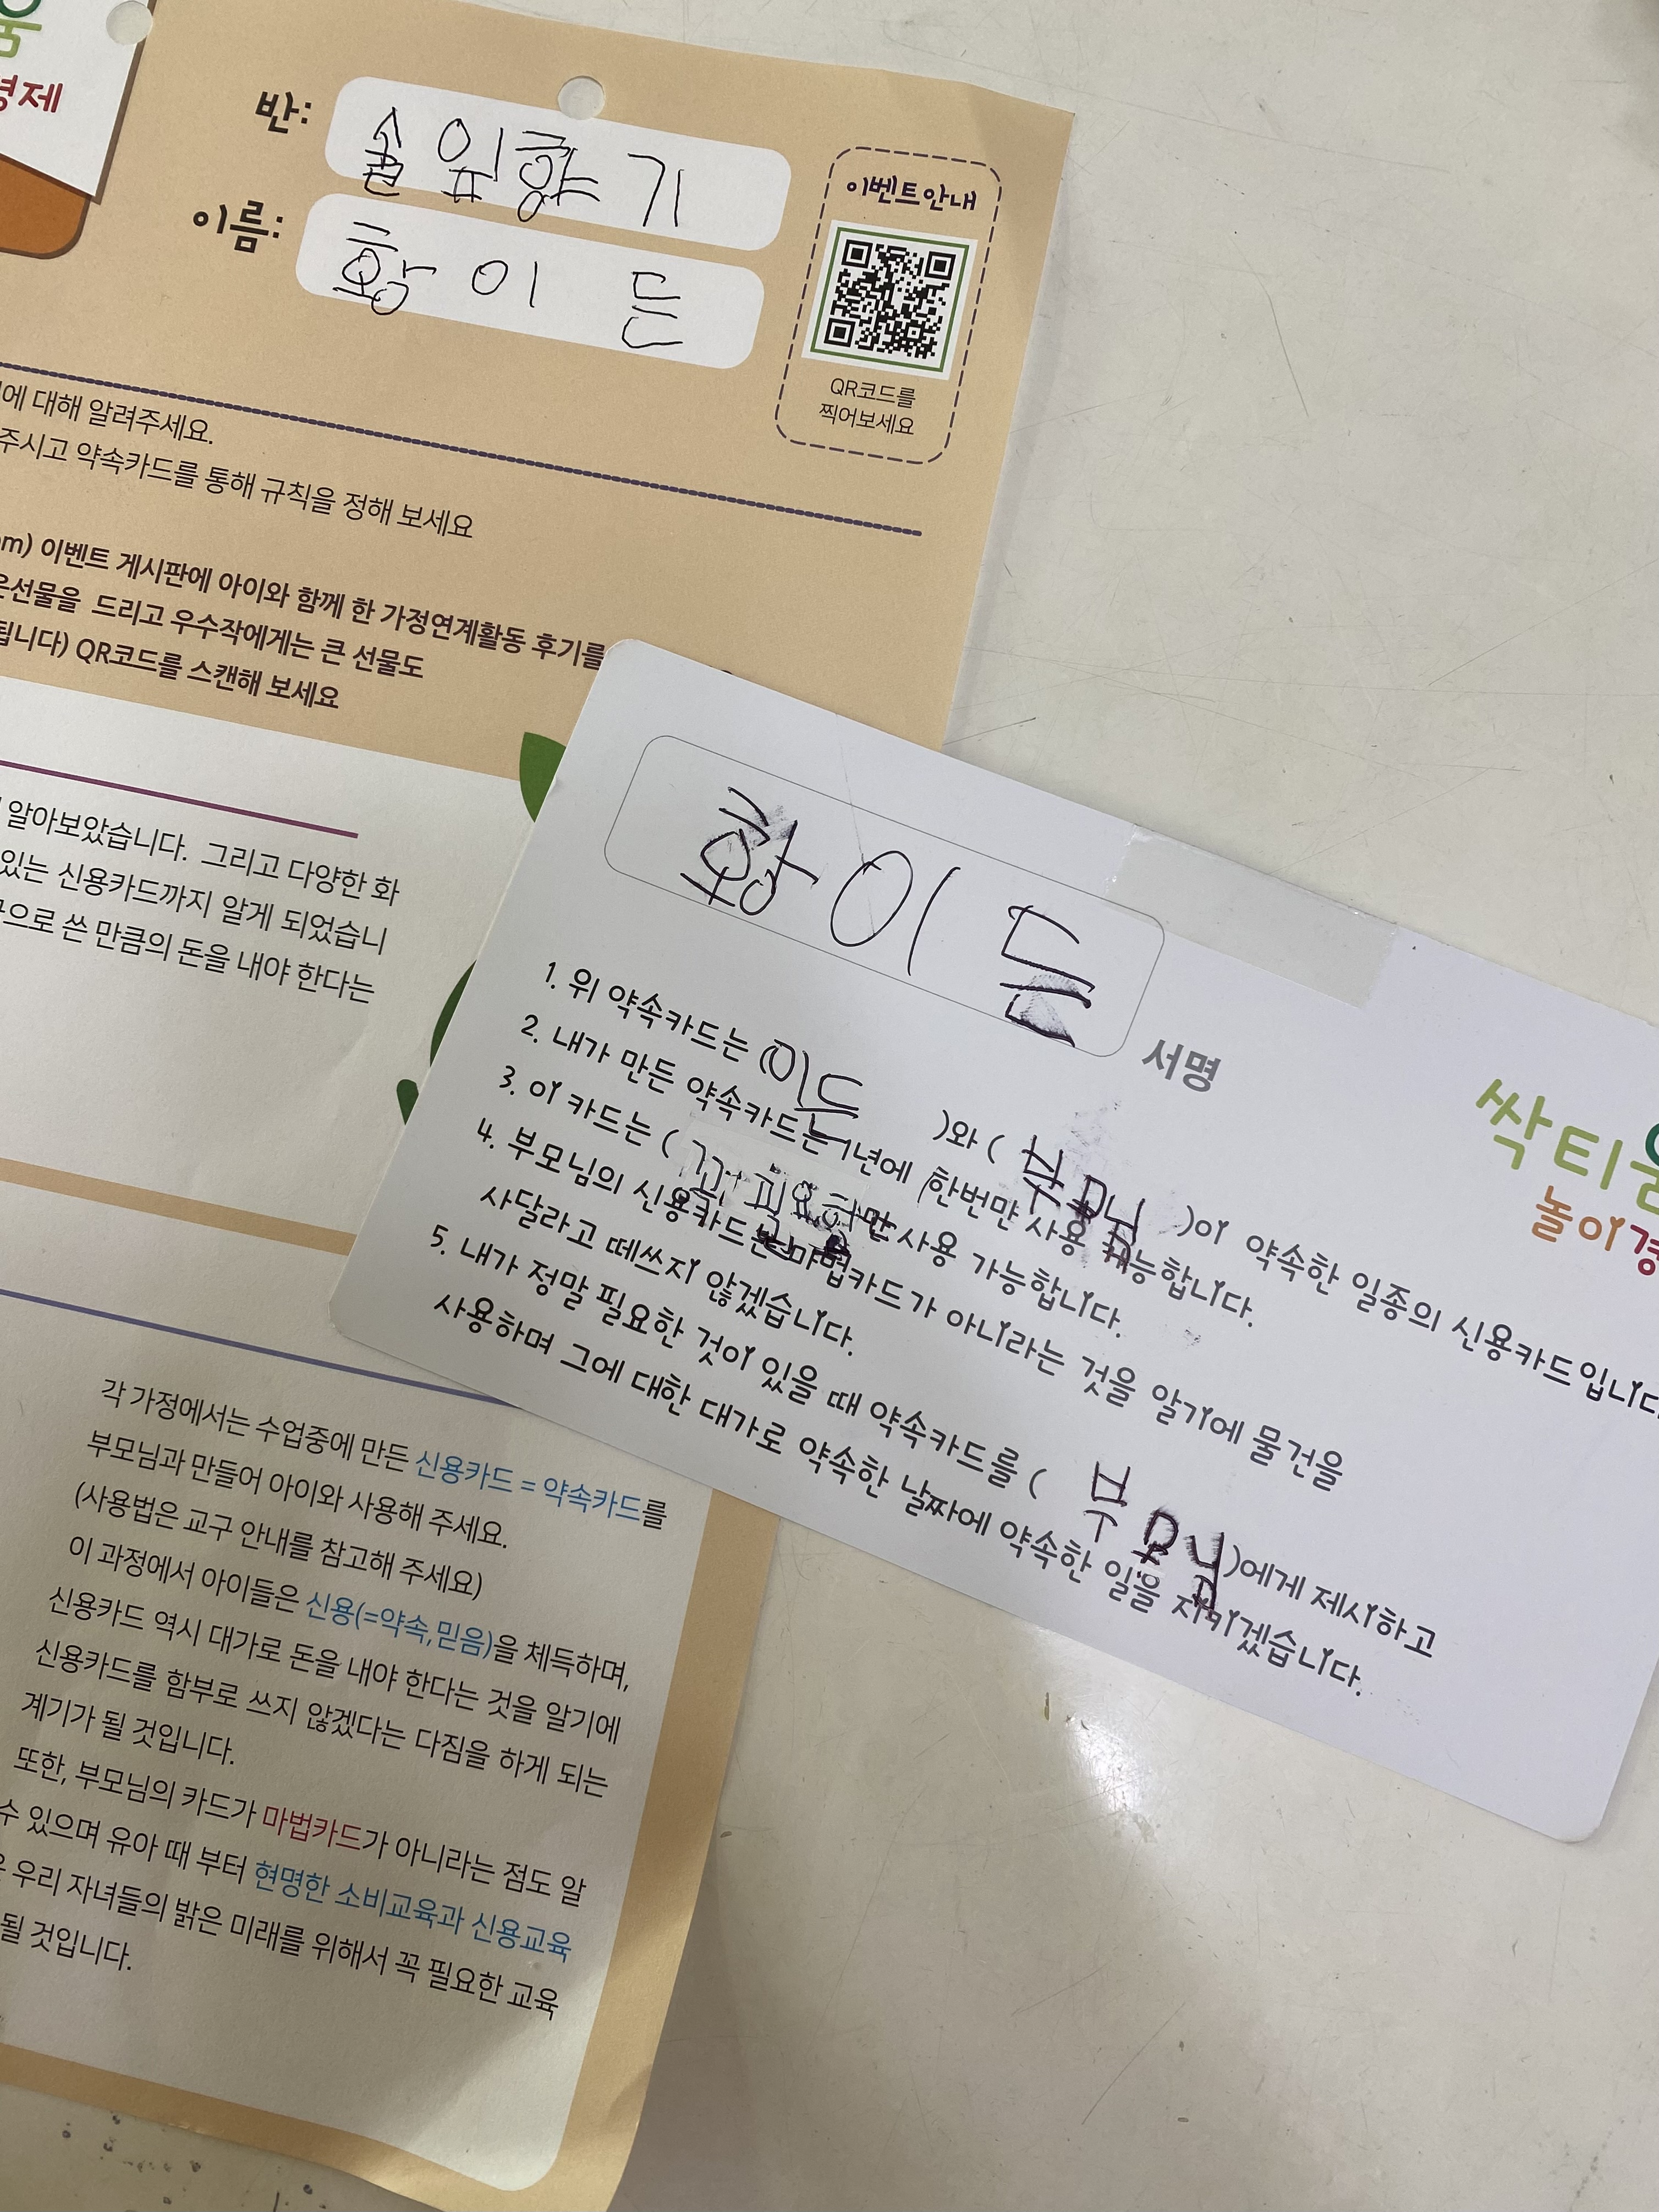 움
경제
반: 솔잎향기
이름: 황이든
이벤트안내
QR코드를
찍어보세요
에 대해 알려주세요.
주시고 약속카드를 통해 규칙을 정해 보세요
om) 이벤트 게시판에 아이와 함께 한 가정연계활동 후기를
은선물을 드리고 우수작에게는 큰 선물도
됩니다) QR코드를 스캔해 보세요
알아보았습니다. 그리고 다양한 화
있는 신용카드까지 알게 되었습니
으로 쓴 만큼의 돈을 내야 한다는
황이든
서명
싹티움
놀이경
1. 위 약속카드는 (이든)와 (부모님)이 약속한 일종의 신용카드입니다
2. 내가 만든 약속카드는 1년에 한번만 사용 가능합니다.
3. 이 카드는 (꼭 필요할 만 사용 가능합니다.
4. 부모님의 신용카드는 마법카드가 아니라는 것을 알기에 물건을
사달라고 떼쓰지 않겠습니다.
5. 내가 정말 필요한 것이 있을 때 약속카드를 (부모님)에게 제시하고
사용하며 그에 대한 대가로 약속한 날짜에 약속한 일을 지키겠습니다.
각 가정에서는 수업중에 만든 신용카드 = 약속카드를
부모님과 만들어 아이와 사용해 주세요.
(사용법은 교구 안내를 참고해 주세요)
이 과정에서 아이들은 신용(=약속,믿음)을 체득하며,
신용카드 역시 대가로 돈을 내야 한다는 것을 알기에
신용카드를 함부로 쓰지 않겠다는 다짐을 하게 되는
계기가 될 것입니다.
또한, 부모님의 카드가 마법카드가 아니라는 점도 알
수 있으며 유아 때 부터 현명한 소비교육과 신용교육
은 우리 자녀들의 밝은 미래를 위해서 꼭 필요한 교육
될 것입니다.